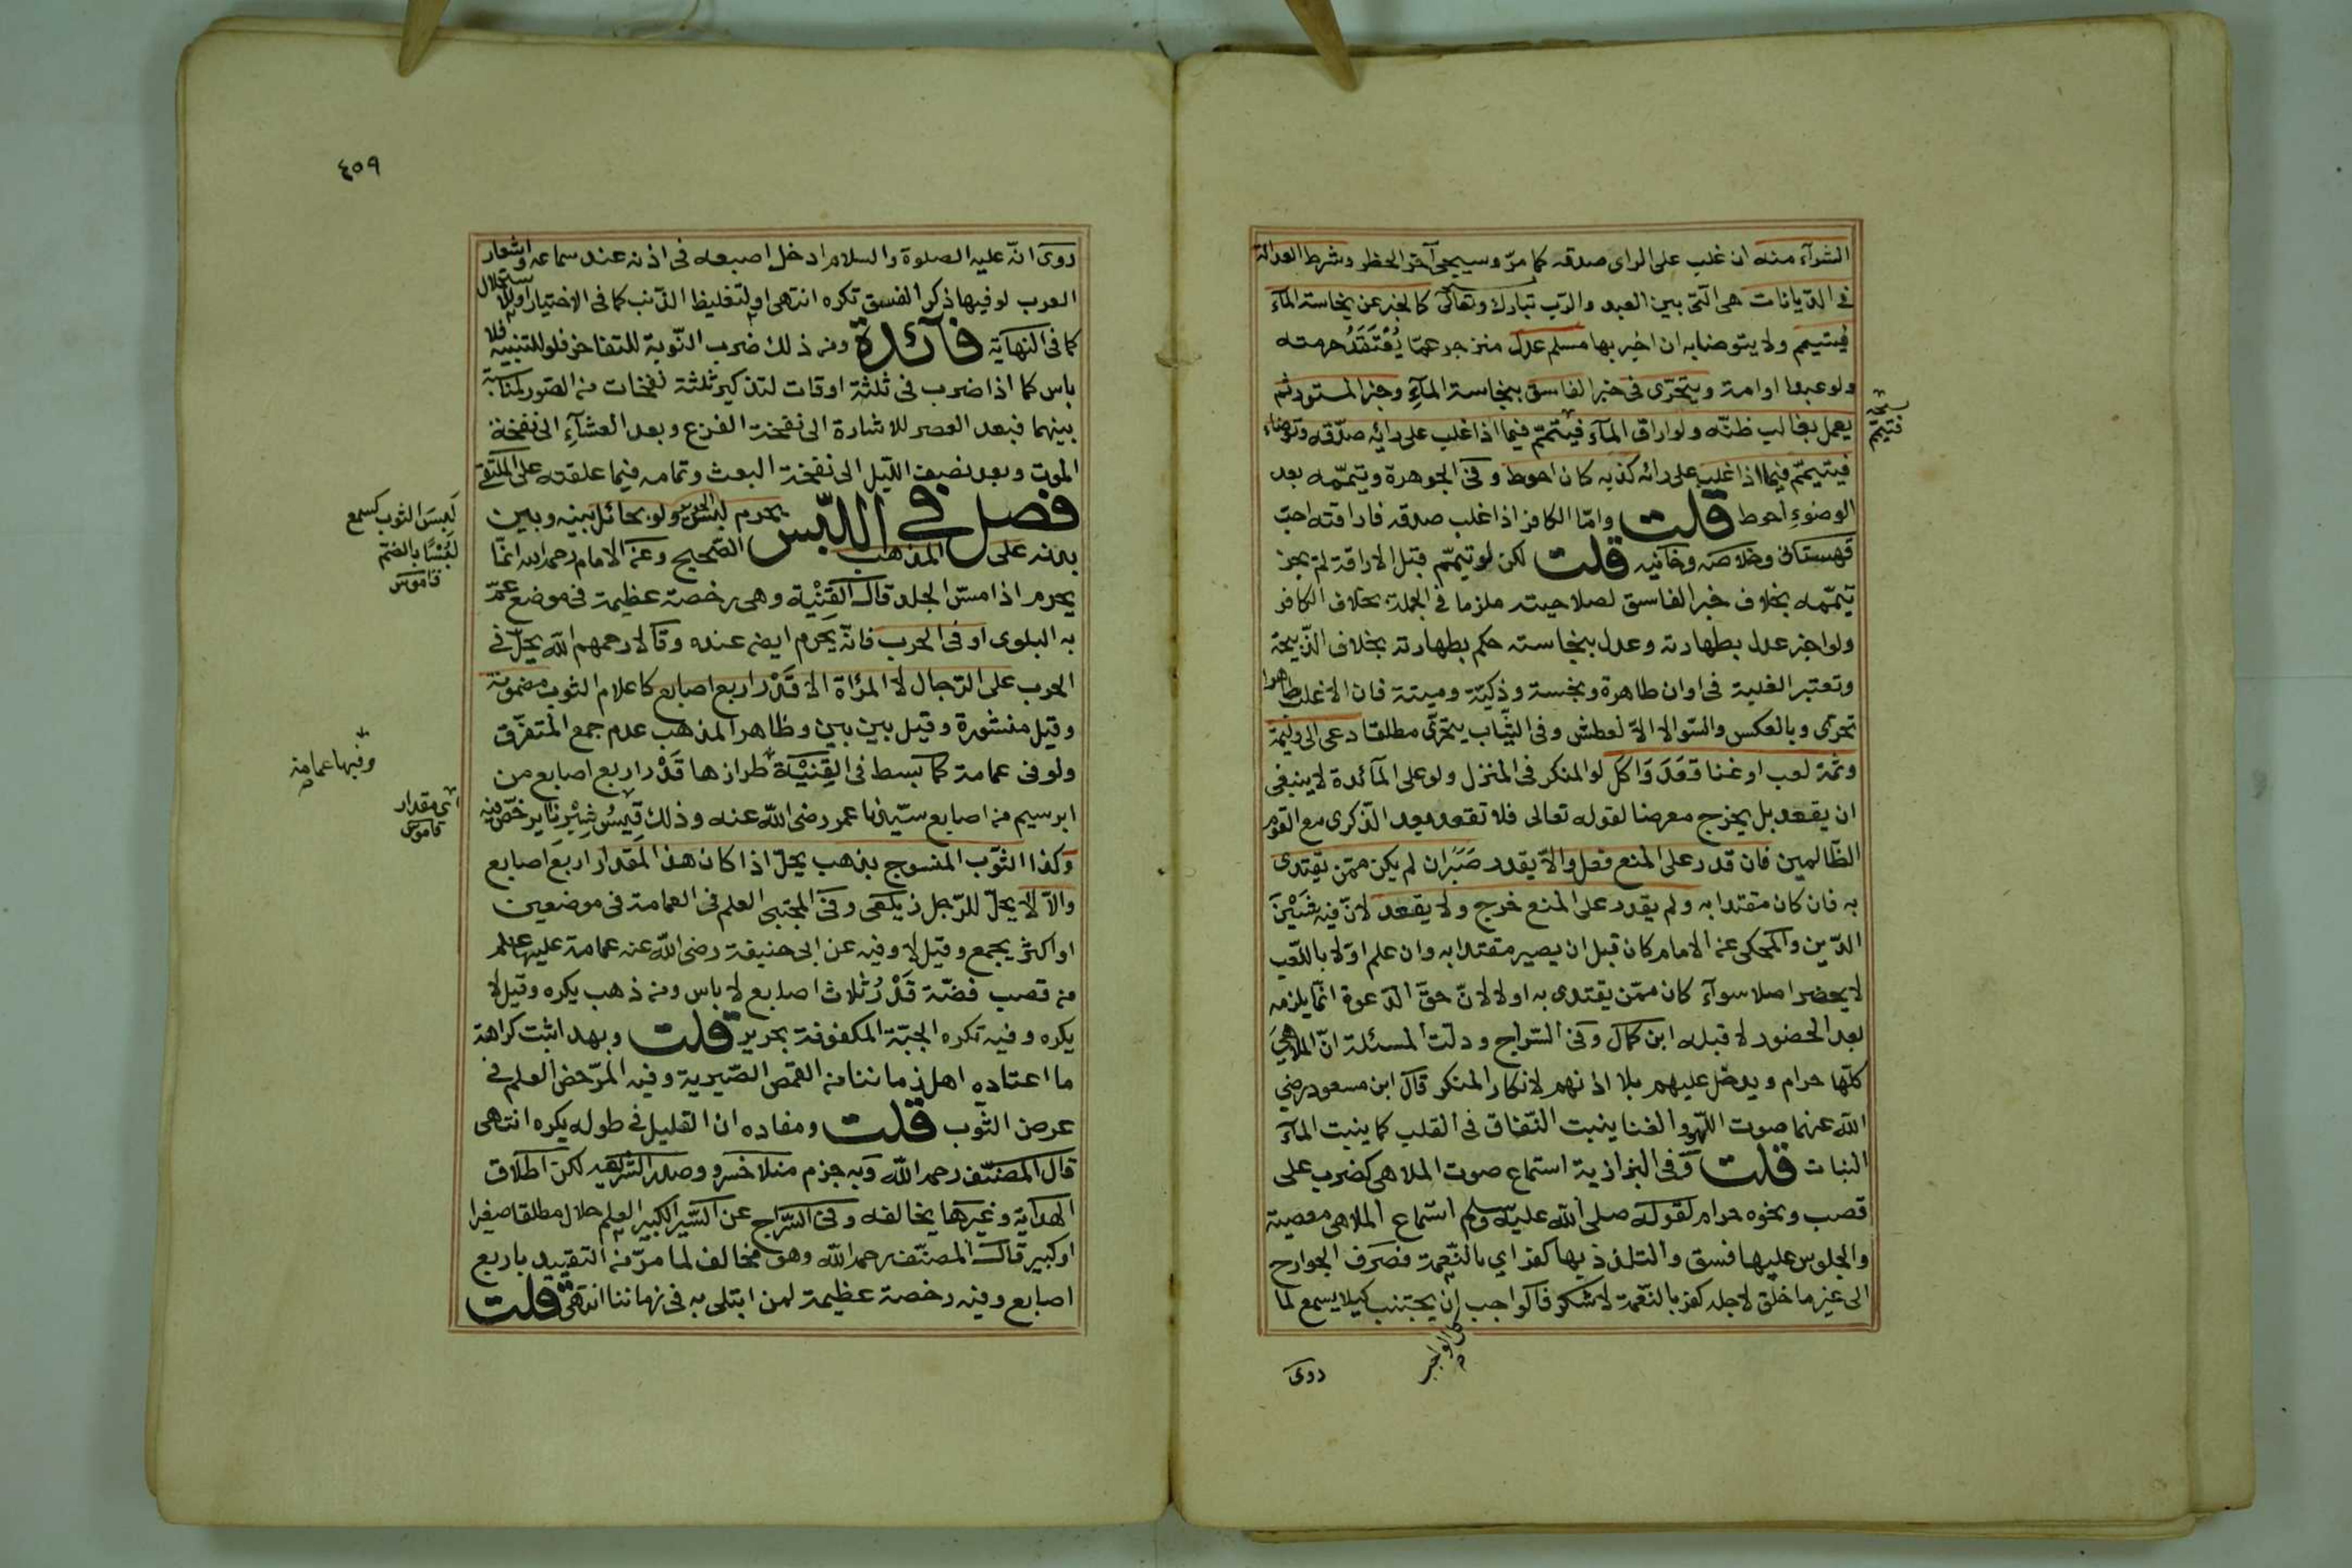 الشرآء منه ان غلب على الراى صدقه كما مرّ وسيجئ آخر الحظر وشرط العدالة
فى الدّيانات هى الّتى بين العبد والرّب تبارك وتعالى كالخبر عن نجاسة المآء
فيتيمم ولا يتوضا به ان اخبر بها مسلم عدل منزجر عمّا يُعْتَقَدُ حرمته
ولو عبدا او امة ويتحرّى فى خبر الفاسق بنجاسة المآءِ وخبر المستور ثم
يعمل بغالب ظنّه ولو اراق المآء فيتمّم فيما اذا غلب على رائه صدقه وتوضاء
فيتيمّم فيما اذا غلب على رائه كذبه كان احوط وفى الجوهرة وتيمّمه بعد
الوضوءِ احوط قلت وامّا الكافر اذا غلب صدقه فاراقته احبّ
قهستانى وخلاصه وخانيه قلت لكن لو تيمّم قبل الاراقة لم يجز
تيمّمه بخلاف خبر الفاسق لصلاحيته ملزما فى الجملة بخلاف الكافر
ولو اخبر عدل بطهارته وعدل بنجاسته حكم بطهارته بخلاف الذّبيحة
وتعتبر الغلبة فى اوان طاهرة ونجسة وذكيّة وميتة فان الاغلب طاهرا
تحرّى وبالعكس والسّوالا الاّ لعطش وفى الثّياب يتحرّى مطلقا دعى الى وليمة
وثمّة لعب او غنا قعَدَ وَاكل لو المنكر فى المنزل ولو على المآئدة لا ينبغى
ان يقعد بل يخرج معرضا لقوله تعالى فلا تقعد بعد الذّكرى مع القوم
الظّالمين فان قدر على المنع فعل والاّ يقدر صَبَرَ ان لم يكن ممّن يقتدى
به فان كان مقتدا به ولم يقدر على المنع خرج ولا يقعد لانّ فيه شَيْنَ
الدّين والمحكى عن الامام كان قبل ان يصير مقتدا به وان علم اوّلا باللّعب
لا يحضر اصلا سوآء كان ممّن يقتدى به او لا لانّ حقّ الدّعوة انّما يلزمه
بعد الحضور لا قبله ابن كمال وفى السّراج ودلّت المسئلة انّ الملاهىَ
كلّها حرام ويدخل عليهم بلا اذنهم لانكار المنكر قال ابن مسعود رضى
الله عنهما صوت اللّهو والغنا ينبت النّفاق فى القلب كما ينبت المآء
النبات قلت وفى البزازية استماع صوت الملاهى كضرب على
قصب ونحوه حرام لقوله صلى الله عليه وسلم استماع الملاهى معصية
والجلوس عليها فسق والتلذذ بها كفر اي بالنّعمة فصرف الجوارح
الى غير ما خلق لاجله كفر بالنّعمة لا شكر فالواجب ان يجتنب كيلا يسمع لما
كل الواجب
روى
نسخه
فتيمّم
٤٥٩
روى انّه عليه الصلوة والسلام ادخل اصبعه فى اذنه عند سماعه واشعار
العرب لو فيها ذكر الفسق تكره انتهى او لتغليظ الذّنب كما فى الاختيار او للاستحلال
كما فى النهاية فآئدة ومن ذلك ضرب النّوبة للتفاخر فلو للتنبيه فلا
باس كما اذا ضرب فى ثلثة اوقات لتذكير ثلثة نفخات من الصّور لمناسبة
بينهما فبعد العصر للاشارة الى نفخة الفزع وبعد العشآءِ الى نفخة
الموت وبعد نصف اللّيل الى نفخة البعث وتمامه فيما علقته على الملتقى
فصل فى اللّبس يحرم لبس الحرير ولو بحائل بينه وبين
بدنه على المذهب الصّحيح وعن الامام رحمه الله انّما
يحرم اذا مسّ الجلد قال القِنْية وهى رخصة عظيمة فى موضع عمّ
به البلوى او فى الحرب فانّه يحرم ايض عنده وقالا رحمهم الله يحلّ فى
الحرب على الرّجال لا المرْاة الا قَدْر اربع اصابع كاعلام الثوب مضمومة
وقيل منشورة وقيل بين بين وظاهر المذهب عدم جمع المتفرّق
ولو فى عمامة كما بسط فى القِنيَة طرازها قَدْر اربع اصابع من
ابرسيم من اصابع سيّدنا عمر رضى الله عنه وذلك قِيْسُ شِبْرِنا يرخّص فيه
وكذا الثوب المنسوج بذهب يحلّ اذا كان هذا المقدار اربعَ اصابع
والاّ لا يحلّ للرّجل زيلعى وفى المجتبى العلم فى العمامة فى موضعين
او اكثر يجمع وقيل لا وفيه عن ابى حنيفة رضى الله عنه عمامة عليها علم
من قصب فضّة قَدْرُ ثلاث اصابع لا باس ومن ذهب يكره وقيل لا
يكره وفيه تكره الجبّة المكفوفة بحرير قلت وبهذا ثبت كراهة
ما اعتاده اهل زماننا من القمص الصّيرية وفيه المرّخص العلم فى
عرض الثّوب قلت ومفاده ان القليل فى طوله يكره انتهى
قال المصنّف رحمه الله وبه جزم منلا خسرو وصدر الشّريعه لكن اطلاق
الهداية وغيرها يخالفه وفى السّراج عن السّير الكبير العلم حلال مطلقا صغيرا
او كبير قال المصنّف رحمه الله وهو مخالف لما مرّ من التقييد باربع
اصابع وفيه رخصة عظيمة لمن ابتلى به فى زماننا انتهى قلت
لَبِسَ الثوب كسمع
لُبْسًا بالضّم
قاموس
وفيها عمامة
اي مقدار
قاموس